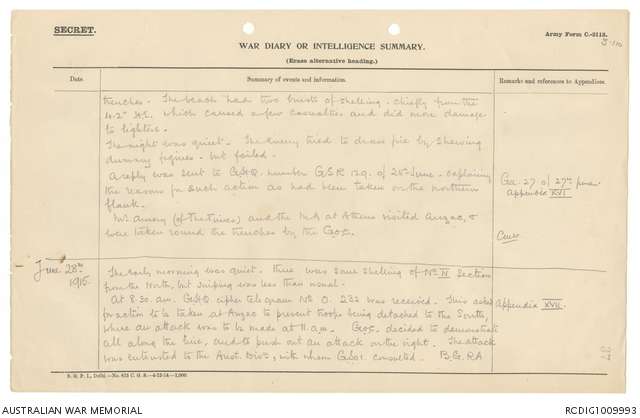 SECRET.
Army Form C.-2118.
WAR DIARY OR INTELLIGENCE SUMMARY.
(Erase alternative heading.)
Date.
Summary of events and information.
Remarks and references to Appendices.
trenches. The beach had two bursts of shelling - chiefly from the
4.2" H.E. which caused a few casualties and did more damage
to lighters.
The night was quiet. The enemy tried to draw fire by shewing
dummy figures - but failed.
A reply was sent to GHQ number GSR 129 of 25th June - explaining
the reasons for such action as had been taken on the northern
flank.
Ga. 27 of 27th June
Appendix XVI
Mr. Amery (of the Times) and the MA at Athens visited Anzac, &
were taken round the trenches by the GOC.
June 28th
1915.
The early morning was quiet. There was some shelling of No IV Section
from the North, but sniping was less than usual.
At 8.30 am. GHQ cipher telegram No O. 232 was received. This asked
Appendix XVII.
for action to be taken at Anzac to prevent troops being detached to the South,
where an attack was to be made at 11 am. GOC. decided to demonstrate
all along the line, and to push out an attack on the right. The attack
was entrusted to the Aust. Divn, with whom consulted. B.G.RA
S. G. P. I., Delhi.
AUSTRALIAN WAR MEMORIAL
RCDIG1009993